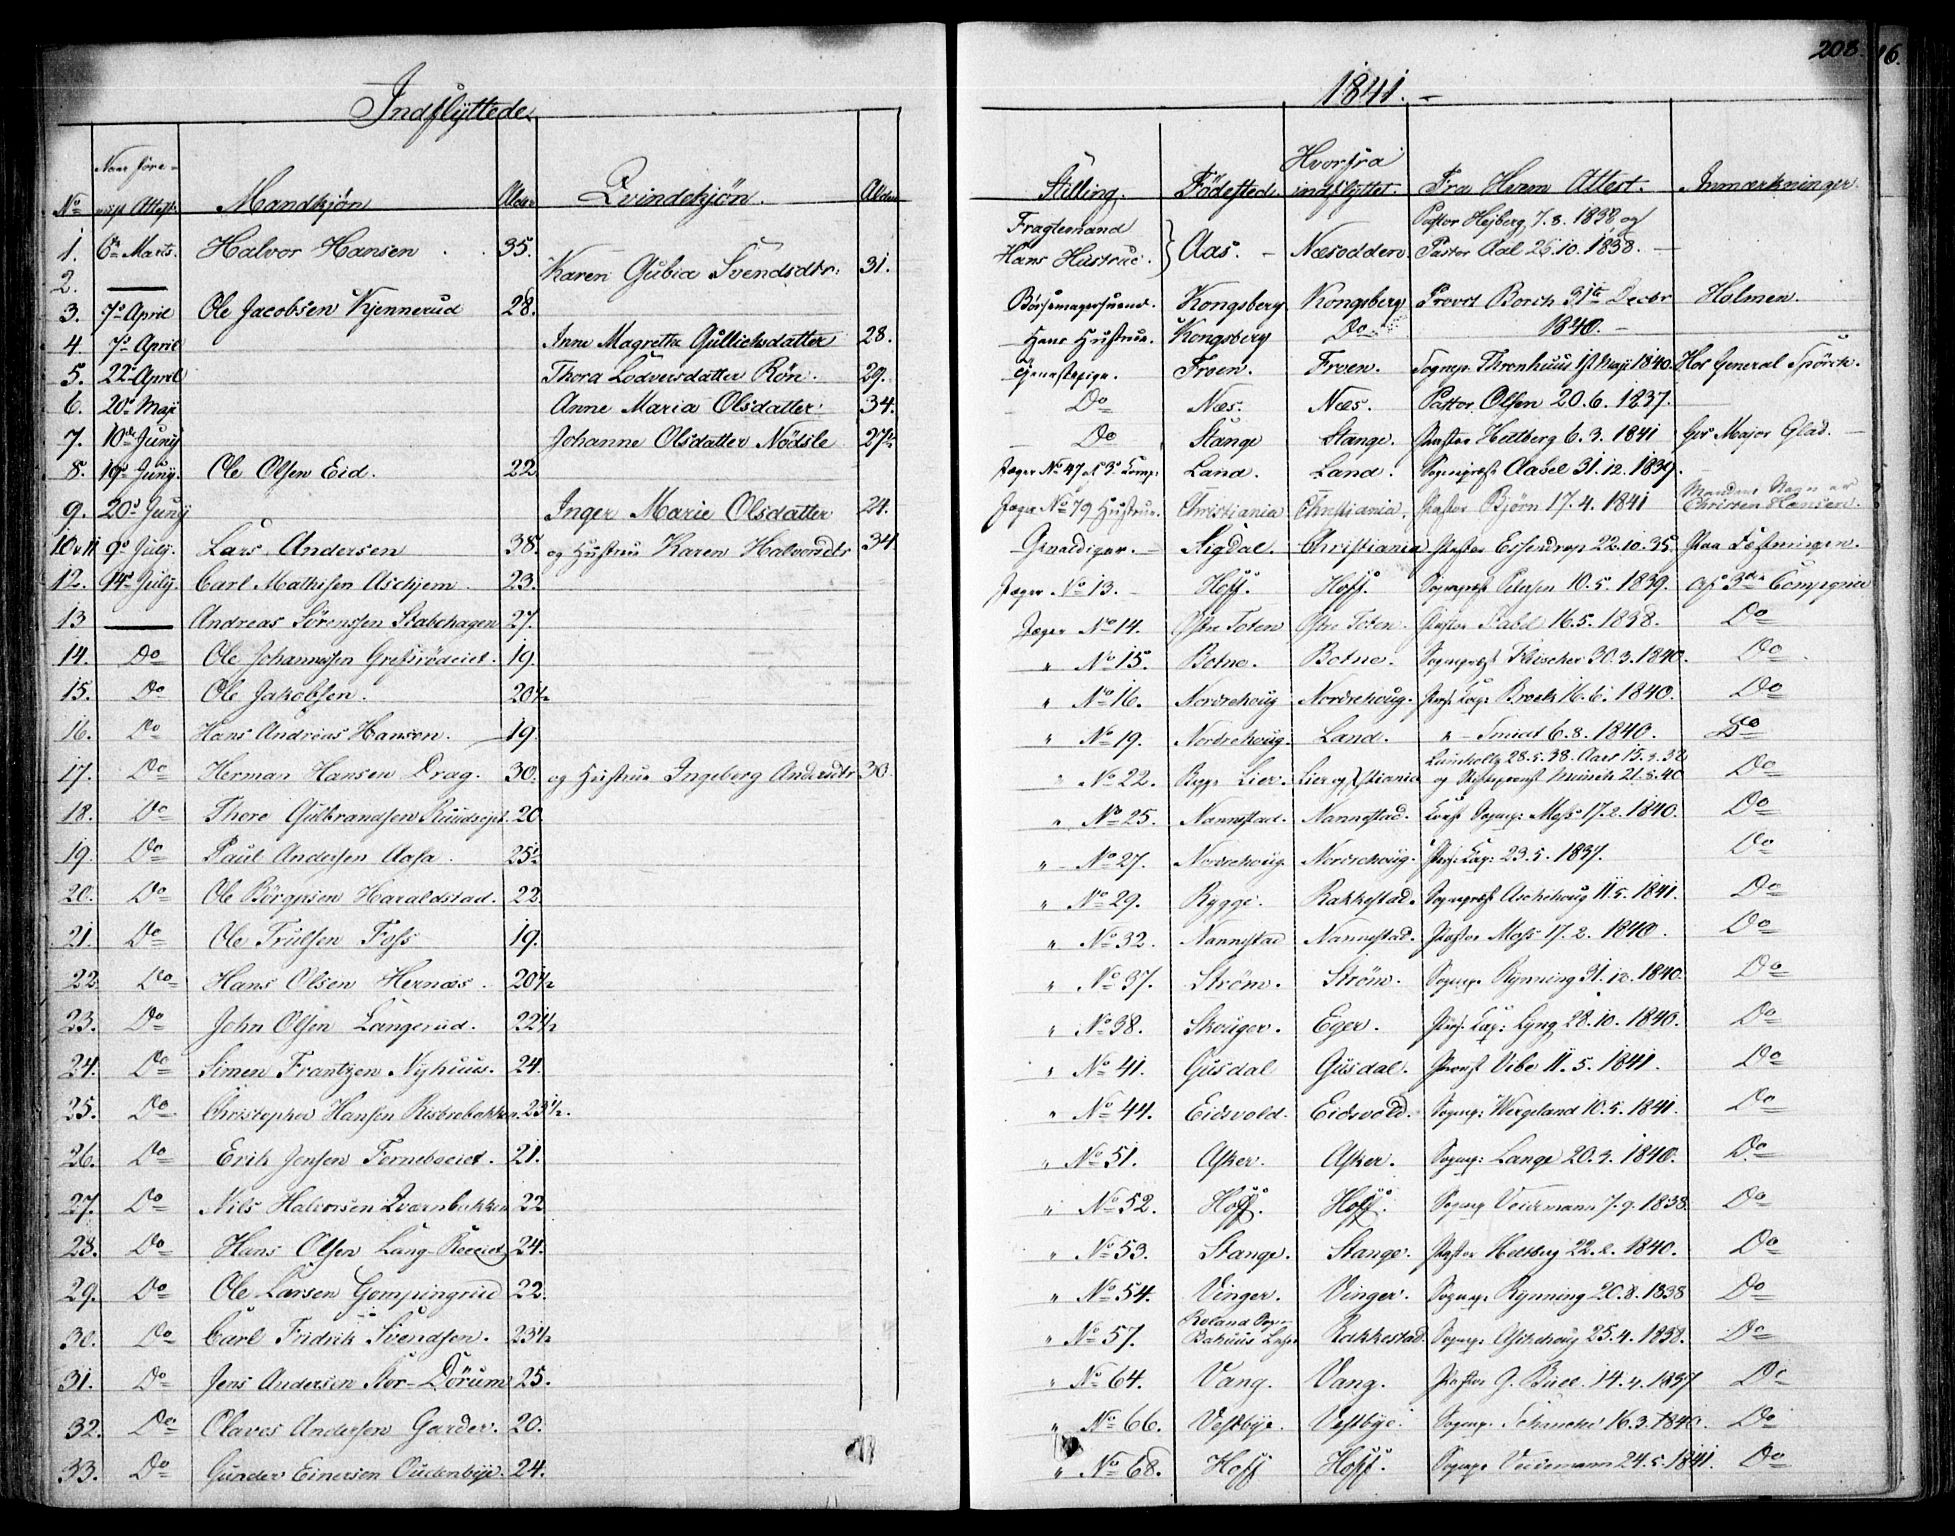 208. 16.
Indflyttede. 1841.
No | Naar fore- viist Attest. | Mandkjøn | Alder | Qvindekjøn. | Alder | Stilling. | Fødested | Hvorfra indflyttet. | Fra Hvem Attest. | Anmærkninger.
1. | 6te Marts. | Halvor Hansen | 35. | | | Fragtemand | Aas. | Næsodden | Pastor Hejberg 7.8.1838 og
2. | — | | | Karen Gubia Svendsdtr: | 31. | Hans Hustrue. | | | Pastor Aal 26.10.1838.
3. | 7de April | Ole Jacobsen Kjennerud | 28. | | | Børsemagersvend. | Kongsberg | Kongsberg | Provst Borch 31te Decbr | Holmen.
4. | 7de April | | | Anne Magrethe Gullichsdatter | 28. | Hans Hustrue. | Kongsberg | Do | 1840.
5. | 22de April | | | Thora Lodversdatter Røn. | 29. | Tjenestepige. | Froen. | Froen. | Sognep: Thronhuus 1st Maji 1840. | Hos General Spørck.
6. | 20de Maji | | | Anne Maria Olsdatter. | 34. | Do | Næs. | Næs. | Pastor Olsen 20.6.1837.
7. | 10de Junij | | | Johanne Olsdatter Nødsle | 27½ | Do | Stange | Stange. | Pastor Heltberg 6.3.1841 | hos Major Glad.
8. | 19de Junij. | Ole Olsen Eid. | 22 | | | Jæger No 47 af 3de Comp: | Land. | Land. | Sognepræst Aabel 31.12.1839.
9. | 20de Junij | | | Inger Marie Olsdatter | 24. | Jæger No 79 Hustrue. | Christiania | Christiania. | Pastor Bjørn 17.4.1841 | Mandens Navn er Christen Hansen.
10 & 11 | 9de July. | Lars Andersen | 38. | og Hustrue Karen Halvorsdtr | 34. | Gevaldiger. | Sigdal. | Christiania | Pastor Essendrop 22.10.35. | Paa Fæstningen.
12. | 14de July. | Carl Mathisen Aschjem. | 23. | | | Jæger No 13. | Hoff. | Hoff. | Sognepræst Petersen 10.5.1839. | Af 3die Compagnie
13 | — | Andreas Sørenssen Stabehagen | 27. | | | Jæger No 14. | Østre Toten | Østre Toten. | Pastor Pabst 16.5.1838. | Do
14. | Do | Ole Johannessen Grefsrødeiet. | 19. | | | " No 15. | Botne. | Botne. | Sognepræst Fleischer 30.3.1840. | Do
15. | Do | Ole Jakobsen. | 20½ | | | " No 16. | Nordrehoug | Nordrehoug. | Pers: Cap: Broch 16.6.1840. | Do
16. | Do | Hans Andreas Hansen. | 19. | | | " No 19. | Nordrehoug. | Land. | " – Smidt 6.8.1840. | Do
17. | Do | Herman Hansen Drag. | 30. | og Hustrue Ingeborg Andersdtr | 30. | " No 22. | Lier. | Lier og Xstiania | Lumholtz 28.5.38. Aars og Stiftsprovst Münch 21.5.40 | Do
18. | Do | Thore Gulbrandsen Ruudsejet. | 20. | | | " No 25. | Nannestad. | Nannestad. | Sognep: Moss 17.2.1840. | Do
19. | Do | Paul Andersen Aasa. | 25½ | | | " No 27. | Nordrehoug. | Nordrehoug. | Pers: Cap: 23.5.1837. | Do
20. | Do | Ole Børgersen Haraldstad. | 22 | | | " No 29. | Rygge. | Rakkestad. | Sognepræst Aschehoug 11.5.1841. | Do
21. | Do | Ole Trulsen Foss | 19. | | | " No 32. | Nannestad | Nannestad. | Pastor Moss 17.2.1840. | Do
22. | Do | Hans Olsen Hernæs. | 20½ | | | " No 37. | Strøm. | Strøm. | Sognep. Rynning 31.12.1840. | Do
23. | Do | John Olsen Langerud. | 22½ | | | " No 38. | Skouger. | Eger. | Pers: Cap: Lyng 28.10.1840. | Do
24. | Do | Simen Frantzen Nyhuus. | 24. | | | " No 41. | Gusdal | Gusdal. | Provst Vibe 11.5.1841. | Do
25. | Do | Christopher Hansen Risbrobakken. | 23½. | | | " No 44. | Eidsvold. | Eidsvold. | Sognep: Wergeland 10.5.1841. | Do
26. | Do | Erik Jensen Forneboeiet. | 21. | | | " No 51. | Asker. | Asker. | Sognep: Lange 20.3.1840. | Do
27. | Do | Nils Halvorsen Qvernbakken | 22 | | | " No 52. | Hoff. | Hoff. | Sognep Veidemann 7.9.1838. | Do
28. | Do | Hans Olsen Lang-Roeeiet | 24. | | | " No 53. | Stange. | Stange. | Pastor Heltberg 22.2.1840. | Do
29. | Do | Ole Larsen Gompingrud | 22. | | | " No 54. | Vinger. | Vinger. | Sognep. Rynning 20.8.1838 | Do
30. | Do | Carl Fridrik Svendsen. | 23½ | | | " No 57. | Roland | Rakkestad. | Sognep. Aschehoug 25.4.1838. | Do
31. | Do | Jens Andersen Stor-Dørum | 25. | | | " No 64. | Vang. | Vang. | Pastor G. Bull. 14.4.1837 | Do
32. | Do | Olaves Andersen Garder. | 20. | | | " No 66. | Vestbye. | Vestbye. | Sognep. Schanche 16.3.1840. | Do
33. | Do | Gunder Einersen Oudenbye. | 24. | | | " No 68. | Hoff | Hoff. | Sognep Veidemann 24.5.1841. | Do